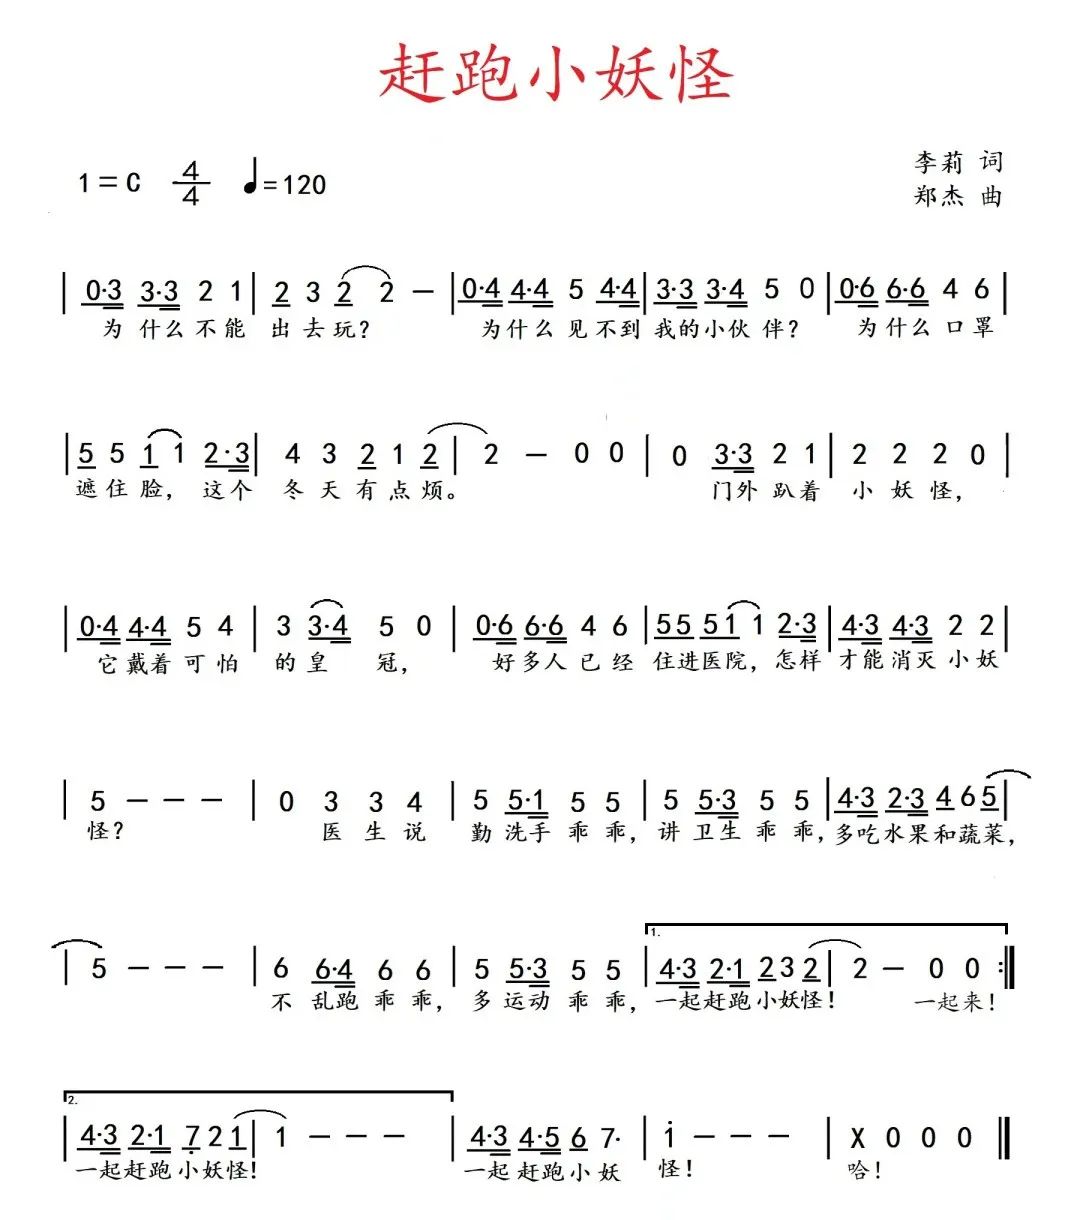 赶跑小妖怪
1=C 4/4 ♩=120
李莉 词
郑杰 曲
| 0·3 3·3 2 1 | 2 3 2 2 — | 0·4 4·4 5 4·4 | 3·3 3·4 5 0 | 0·6 6·6 4 6
为 什么不能 出去玩? 为什么见不到 我的小伙伴? 为什么口罩
| 5 5 1 1 2·3 | 4 3 2 1 2 | 2 — 0 0 | 0 3·3 2 1 | 2 2 2 0 |
遮住脸, 这个 冬天有点烦。 门外趴着 小妖怪,
| 0·4 4·4 5 4 | 3 3·4 5 0 | 0·6 6·6 4 6 | 55 51 1 2·3 | 4·3 4·3 2 2
它戴着可怕 的皇 冠, 好多人已经 住进医院, 怎样 才能消灭小妖
| 5 — — — | 0 3 3 4 | 5 5·1 5 5 | 5 5·3 5 5 | 4·3 2·3 4 6 5 |
怪? 医生说 勤洗手乖乖, 讲卫生乖乖, 多吃水果和蔬菜,
| 5 — — — | 6 6·4 6 6 | 5 5·3 5 5 | 1. 4·3 2·1 2 3 2 | 2 — 0 0 :‖
不乱跑乖乖, 多运动乖乖, 一起赶跑小妖怪! 一起来!
2.
| 4·3 2·1 7̣ 2 1 | 1 — — — | 4·3 4·5 6 7· | i — — — | X 0 0 0 ‖
一起赶跑小妖怪! 一起赶跑小妖 怪! 哈!